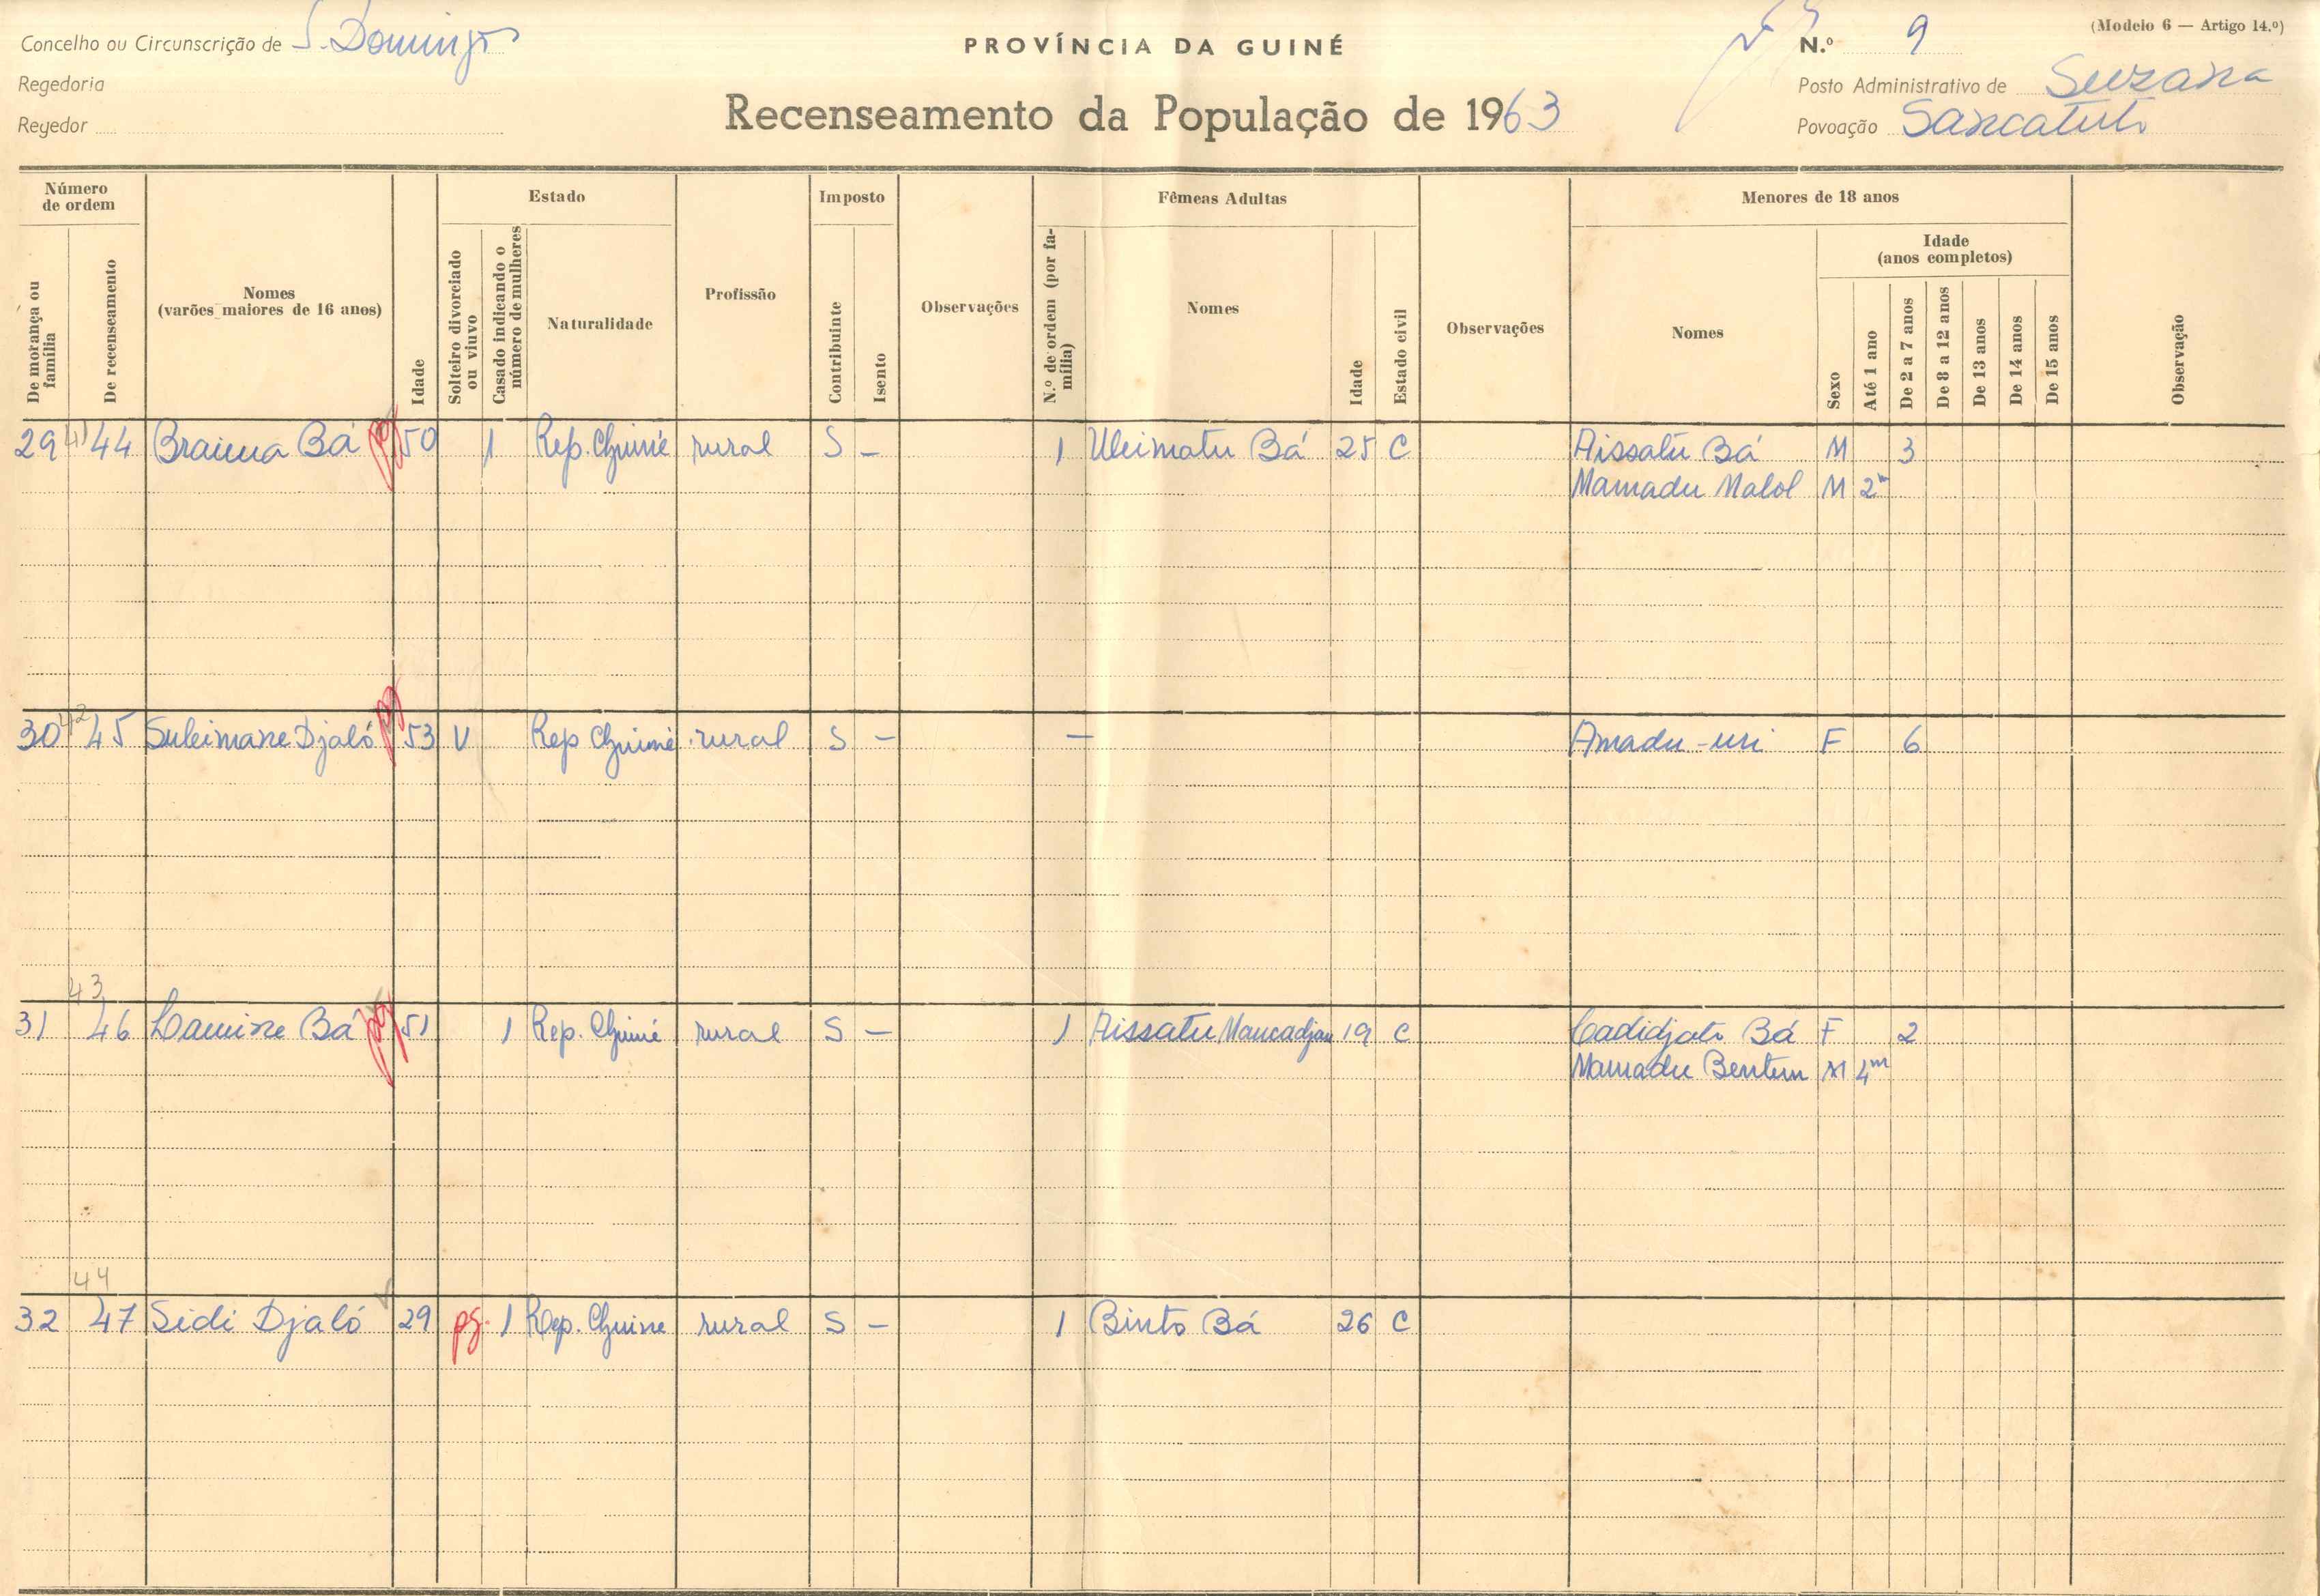 Concelho ou Circunscrição de S. Domingos
PROVÍNCIA DA GUINÉ
N.º 9
(Modelo 6 — Artigo 14.º)
Regedoria
Posto Administrativo de Suzana
Regedor
Recenseamento da População de 1963
Povoação Sancatuto
Número de ordem
Estado
Imposto
Fêmeas Adultas
Menores de 18 anos
De morança ou família
De recenseamento
Nomes (varões maiores de 16 anos)
Idade
Solteiro divorciado ou viuvo
Casado indicando o número de mulheres
Naturalidade
Profissão
Contribuinte
Isento
Observações
N.º de ordem (por família)
Nomes
Idade
Estado civil
Observações
Nomes
Sexo
Idade (anos completos)
Até 1 ano
De 2 a 7 anos
De 8 a 12 anos
De 13 anos
De 14 anos
De 15 anos
Observação
29 41 44 Braima Bá pg 50 1 Rep. Guiné rural S - 1 Uleimatu Bá 25 C Aissatu Bá M 3
Mamadu Malol M 2m
30 42 45 Suleimane Djaló pg 53 V Rep Guiné rural S - - Amadu-uri F 6
43
31 46 Lamine Bá pg 51 1 Rep. Guiné rural S - 1 Aissatu Mancadjau 19 C Cadidjato Bá F 2
Mamadu Bentum M 4m
44
32 47 Sidi Djaló 29 pg. 1 Rep. Guine rural S - 1 Binto Bá 26 C